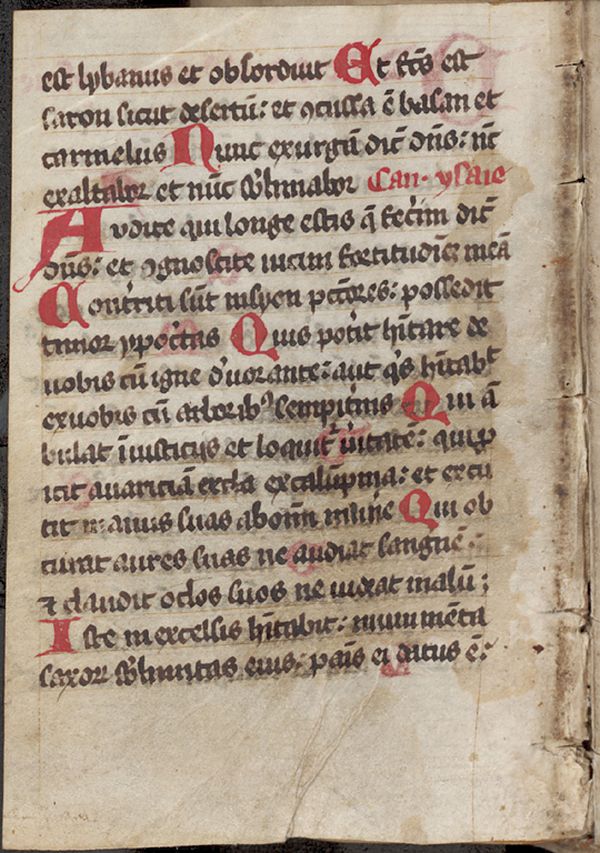 est lybanus et obsorduit Et fc̄s est
saron sicut desertū: et ꝯcussa ē basan et
carmelus Nunc exurgā dic̄ dn̄s: nūc
exaltabor et nūc sb̓limabor Can. ysaie
Audite qui longe estis q̄ fec̓im dic̄
dn̄s: et ꝯgnoscite uicini fortitudinē meā
Contriti sūt in syon pc̄cores: possedit
timor ypoc̓tas Quis pot̓it hītare de
uobis cū igne d̓uorante: aut q̓s hītabᵗ
ex uobis cū ardorib᷒ sempit̓nis Qui ā
bulat ī iusticijs et loquit᷑ ūitatē: qui ꝓ
icit auariciā ex calūpnia: et excu
tit manus suas ab om̄i mun̓e Qui ob
turat aures suas ne audiat sanguīē:
⁊ claudit oc̓los suos ne uideat malū;
Iste in excelsis hītabit: munimēta
saxoꝝ sb̓limitas eius: panis ei datus ē: